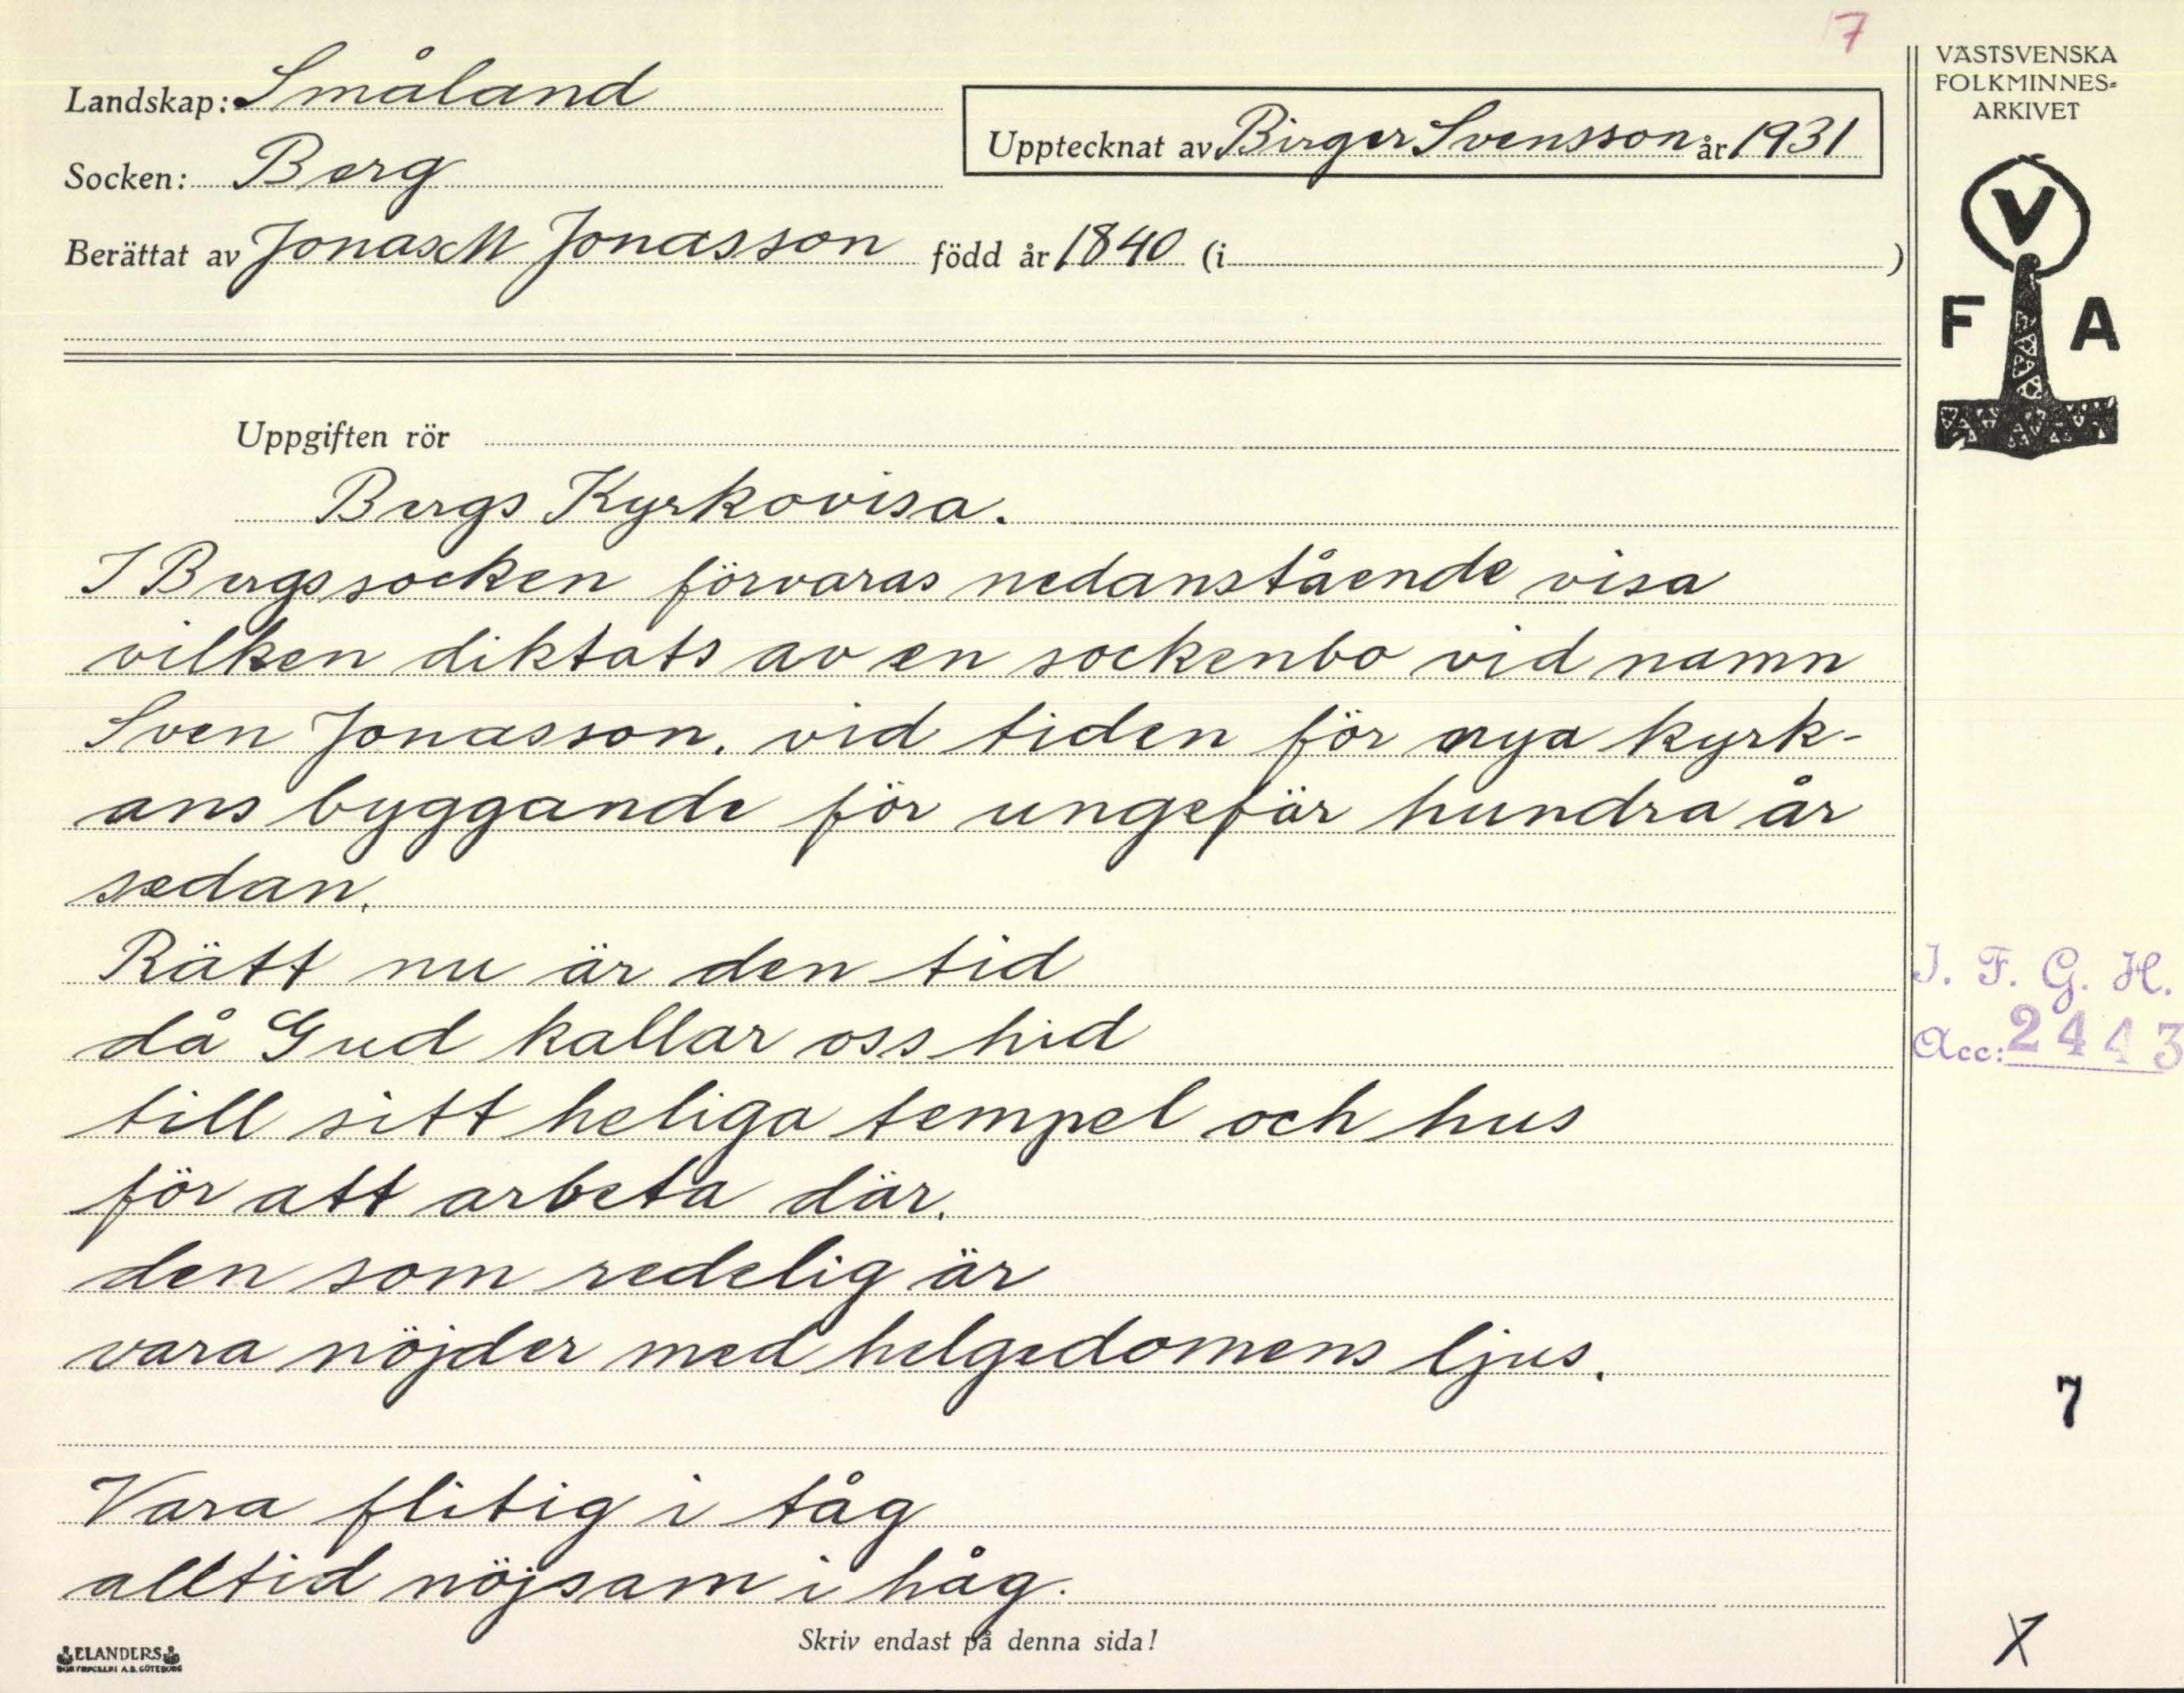 7
Landskap: Småland
Socken: Berg
Upptecknat av Birger Svensson år 1931
Berättat av Jonas M Jonasson född år 1840 (i )
VÄSTSVENSKA
FOLKMINNES-
ARKIVET
V
F A
Uppgiften rör
Bergs Kyrkovisa.
I Bergs socken förvaras nedanstående visa
vilken diktats av en sockenbo vid namn
Sven Jonasson, vid tiden för nya kyrk-
ans byggande för ungefär hundra år
sedan.
Rätt nu är den tid
då Gud kallar oss hid
till sitt heliga tempel och hus
för att arbeta där.
den som redelig är
vara nöjder med helgedomens ljus.
Vara flitig i tåg
alltid nöjsam i håg.
I. F. G. H.
Acc: 2443
7
X
Skriv endast på denna sida!
ELANDERS